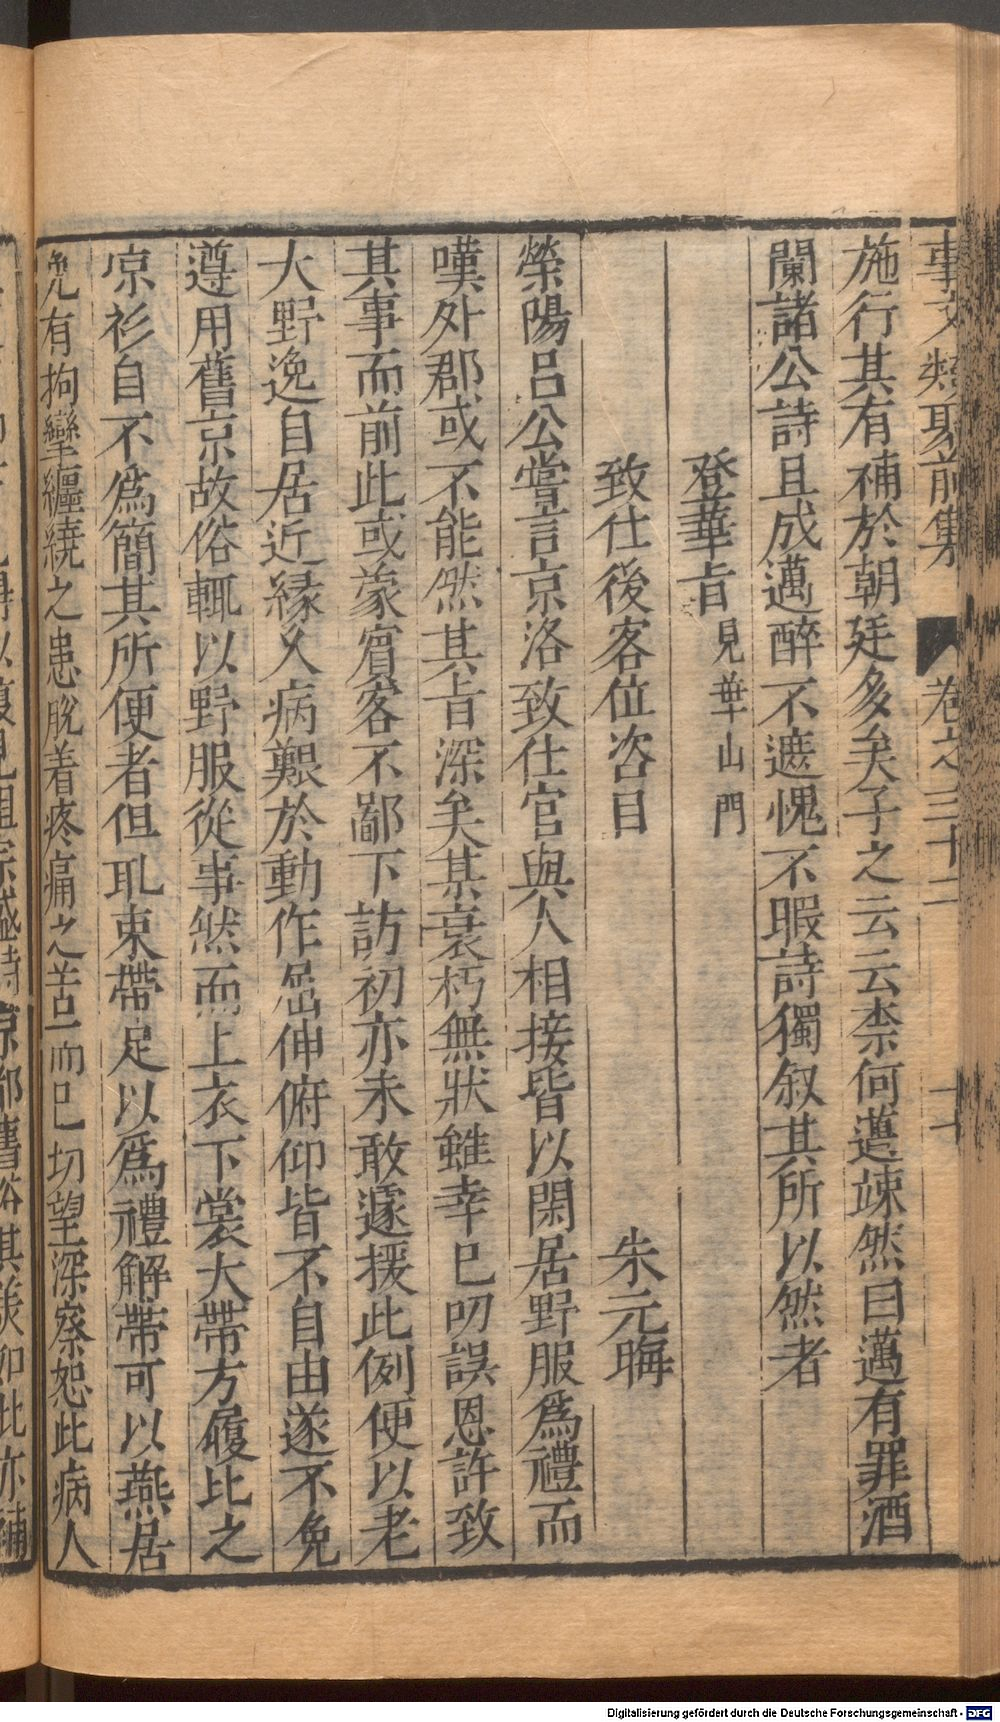 事文類聚前集 卷之三十二 十七
施行其有補於朝廷多矣子之云云柰何邁竦然曰邁有罪酒
闌諸公詩且成邁醉不遮愧不暇詩獨叙其所以然者
登華旨見華山門
致仕後客位咨目 朱元晦
滎陽呂公嘗言京洛致仕官與人相接皆以閑居野服爲禮而
嘆外郡或不能然其旨深矣某衰朽無狀雖幸已叨誤恩許致
其事而前此或蒙賓客不鄙下訪初亦未敢遽援此例便以老
大野逸自居近緣久病艱於動作屈伸俯仰皆不自由遂不免
遵用舊京故俗輒以野服從事然而上衣下裳大帶方履比之
凉衫自不爲簡其所便者但取束帶足以爲禮解帶可以燕居
免有拘攣纏繞之患脫着疼痛之苦而已切望深察恕此病人
復見祖宗盛時京都舊俗其美如此亦補
Digitalisierung gefördert durch die Deutsche Forschungsgemeinschaft - DFG